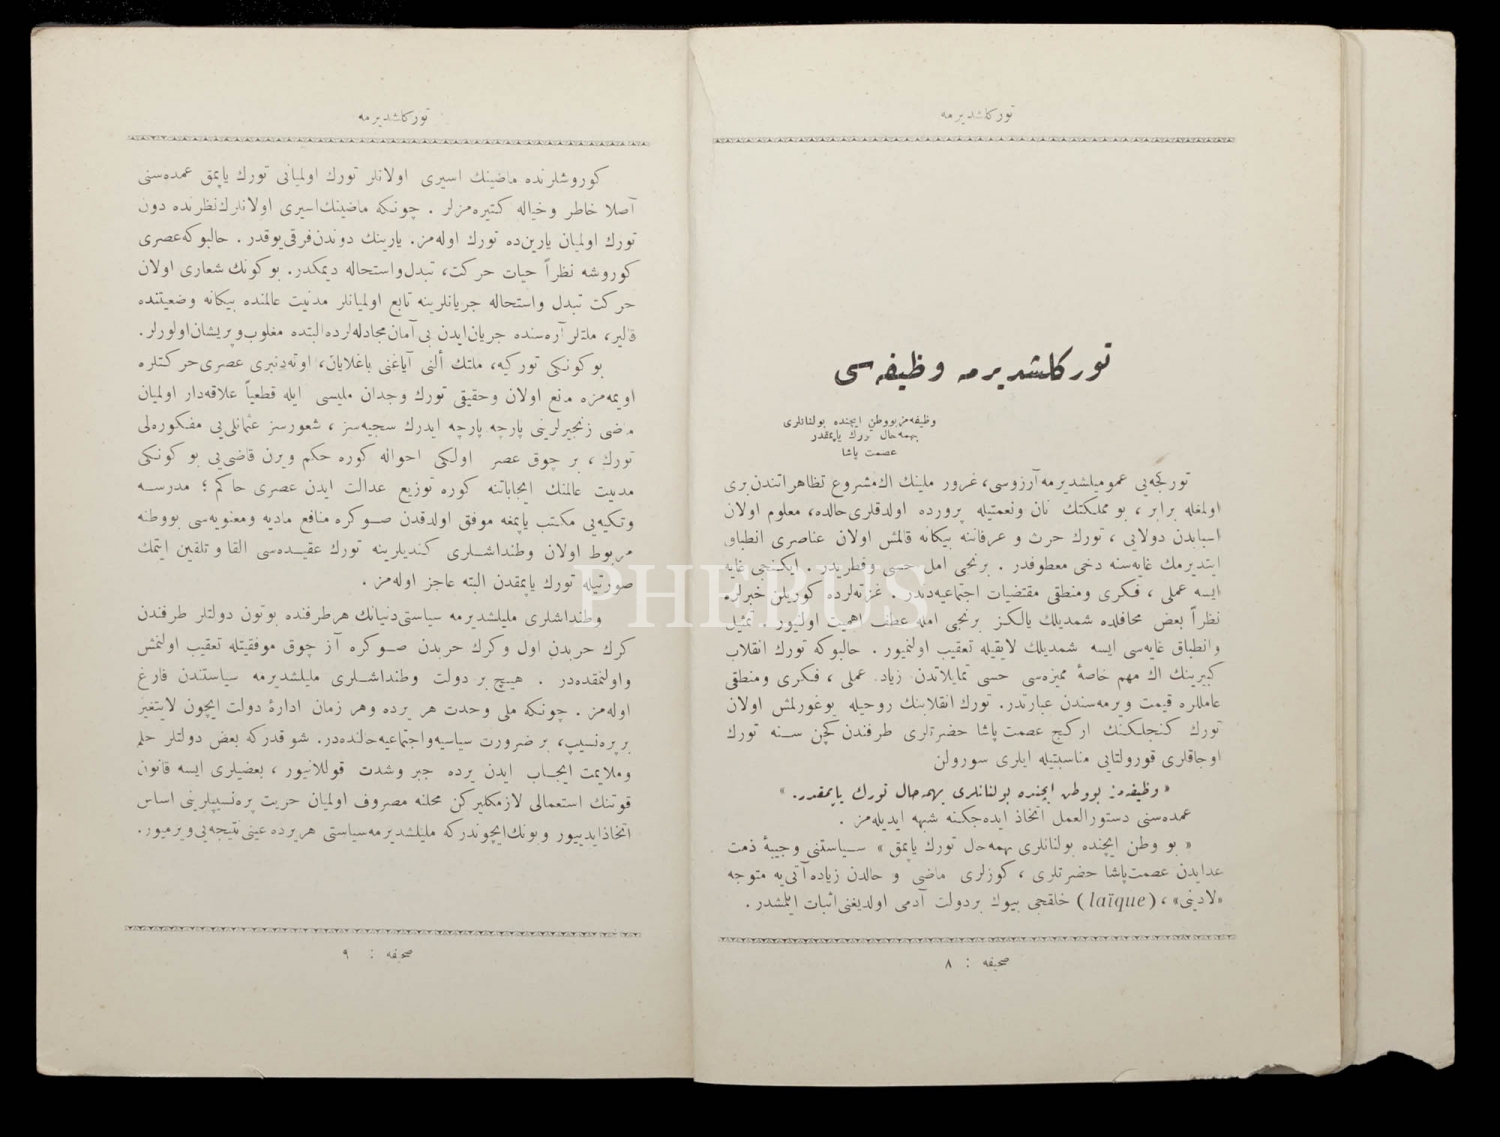 توركلشديرمه
توركلشديرمه وظيفه‌سى
وظيفه‌مز بووطن ايچنده بولنانلرى
بهمه‌حال تورك ياپمقدر
عصمت پاشا
توركجه‌يى عموميلشديرمه آرزوسى، غرور ملينك اك مشروع تظاهراتندن برى
اولمغله برابر ، بو مملكتك نان ونعمتيله پرورده اولدقلرى حالده، معلوم اولان
اسبابدن دولايى ، تورك حرث و عرفاننه بيكانه قالمش اولان عناصرى انطباق
ايتديرمك غايه‌سنه دخى معطوفدر . برنجى امل حسى وفطريدر . ايكنجى غايه
ايسه عملى ، فكرى ومنطقى مقتضيات اجتماعيه‌دندر . غزته‌لرده كوريلن خبرلره
نظراً بعض محافلده شمديلك يالكز برنجى امله عطف اهميت اولنيور . تمثيل
وانطباق غايه‌سى ايسه شمديلك لايقيله تعقيب اولنميور . حالبوكه تورك انقلاب
كبيرينك اك مهم خاصهٔ مميزه‌سى حسى تمايلاتدن زياده عملى ، فكرى ومنطقى
عامللره قيمت ويرمه‌سندن عبارتدر. تورك انقلابنك روحيله يوغورلمش اولان
تورك كنجلكنك اركج عصمت پاشا حضرتلرى طرفندن كچن سنه تورك
اوجاقلرى قورولتايى مناسبتيله ايلرى سورولن
« وظيفه‌مز بووطن ايچنده بولنانلرى بهمه‌حال تورك ياپمقدر. »
عمده‌سنى دستورالعمل اتخاذ ايده‌جكنه شبهه ايديله‌مز .
« بو وطن ايچنده بولنانلرى بهمه‌حال تورك ياپمق » سياستنى وجيبهٔ ذمت
عدايدن عصمت‌پاشا حضرتلرى ، كوزلرى ماضى و حالدن زياده آتى‌يه متوجه
«لادينى» ، (laïque) خلقجى بيوك بردولت آدمى اولديغنى اثبات ايلمشدر .
صحيفه : ٨
توركلشديرمه
كوروشلرنده ماضينك اسيرى اولانلر تورك اولميانى تورك ياپمق عمده‌سنى
آصلا خاطر وخياله كتيره‌مزلر . چونكه ماضينك اسيرى اولانلرك نظرنده دون
تورك اولميان يارين‌ده تورك اوله‌مز. يارينك دوندن فرقى يوقدر . حالبوكه عصرى
كوروشه نظراً حيات حركت، تبدل واستحاله ديمكدر. بو كونك شعارى اولان
حركت تبدل واستحاله جريانلرينه تابع اولميانلر مدنيت عالمنده بيكانه وضعيتنده
قالير، ملتلر آره‌سنده جريان ايدن بى آمان مجادله‌لرده البتده مغلوب و پريشان اولورلر.
بو كونكى توركيه، ملتك ألنى آياغنى باغلايان، اوته‌دنبرى عصرى حركتلره
اويمه‌مزه مانع اولان وحقيقى تورك وجدان مليسى ايله قطعياً علاقه‌دار اولميان
ماضى زنجيرلرينى پارچه پارچه ايدرك سجيه‌سز ، شعورسز عثمانلى‌يى مفكوره‌لى
تورك ، بر چوق عصر اولكى احواله كوره حكم ويرن قاضى‌يى بو كونكى
مدنيت عالمنك ايجاباتنه كوره توزيع عدالت ايدن عصرى حاكم ؛ مدرسه
وتكيه‌يى مكتب ياپمغه موفق اولدقدن صوكره منافع ماديه ومعنويه‌سى بووطنه
مربوط اولان وطنداشلرى كنديلرينه تورك عقيده‌سى القا و تلقين ايتمك
صورتيله تورك ياپمقدن البته عاجز اوله‌مز .
وطنداشلرى مليلشديرمه سياستى دنيانك هرطرفنده بوتون دولتلر طرفندن
كرك حربدن اول وكرك حربدن صوكره آز چوق موفقيتله تعقيب اولنمش
واولنمقده‌در . هيچ بر دولت وطنداشلرى مليلشديرمه سياستندن فارغ
اوله‌مز . چونكه ملى وحدت هر يرده وهر زمان ادارهٔ دولت ايچون لايتغير
بر پره‌نسيپ، بر ضرورت سياسيه واجتماعيه حالنده‌در. شو قدركه بعض دولتلر حلم
وملايمت ايجاب ايدن يرده جبر وشدت قوللانيور ، بعضيلرى ايسه قانون
قوتنك استعمالى لازمكليركن محلنه مصروف اولميان حريت پره‌نسيپلرينى اساس
اتخاذ ايدييور و بونك ايچوندركه مليلشديرمه سياستى هر يرده عينى نتيجه‌يى ويرميور.
صحيفه : ٩
PHEBUS